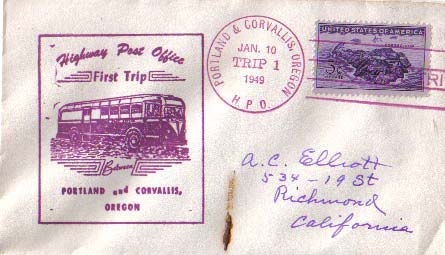 Highway Post Office
First Trip
Between
PORTLAND and CORVALLIS,
OREGON
PORTLAND & CORVALLIS, OREGON
JAN. 10
TRIP 1
1949
H.P.O.
UNITED STATES OF AMERICA
A.C. Elliott
534-19 St
Richmond
California